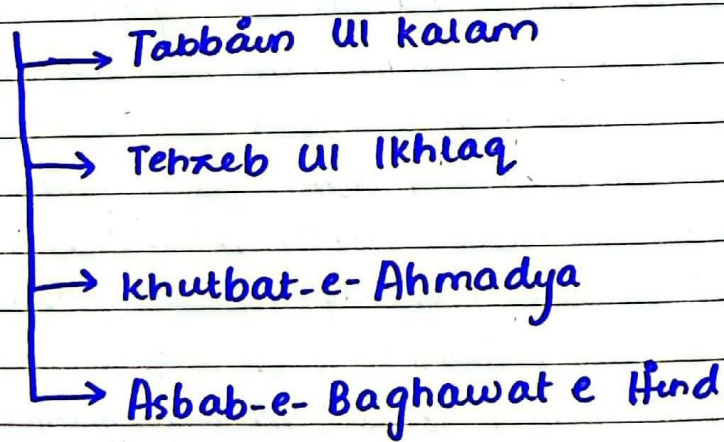 → Tabbain Ul Kalam
→ Tehzeb Ul Ikhlaq
→ Khutbat-e-Ahmadya
→ Asbab-e-Baghawat e Hind